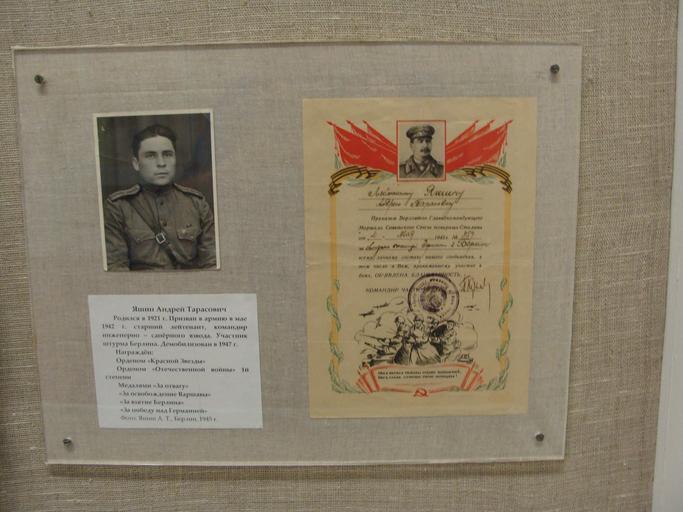 Яшин Андрей Тарасович
Родился в 1921 г. Призван в армию в мае
1942 г. старший лейтенант, командир
инженерно – сапёрного взвода. Участник
штурма Берлина. Демобилизован в 1947 г.
Награждён:
Орденом «Красной Звезды»
Орденом «Отечественной войны» 1й
степени
Медалями «За отвагу»
«За освобождение Варшавы»
«За взятие Берлина»
«За победу над Германией»
Фото: Яшин А. Т., Берлин, 1945 г.
Яшину
Приказом Верховного Главнокомандующего
Маршала Советского Союза товарища Сталина
от 2 - мая 1945 г. № 359
за Берлин
всему личному составу нашего соединения, в
том числе и Вам, принимавшему участие в
боях, ОБ'ЯВЛЕНА БЛАГОДАРНОСТЬ.
КОМАНДИР ЧАСТИ